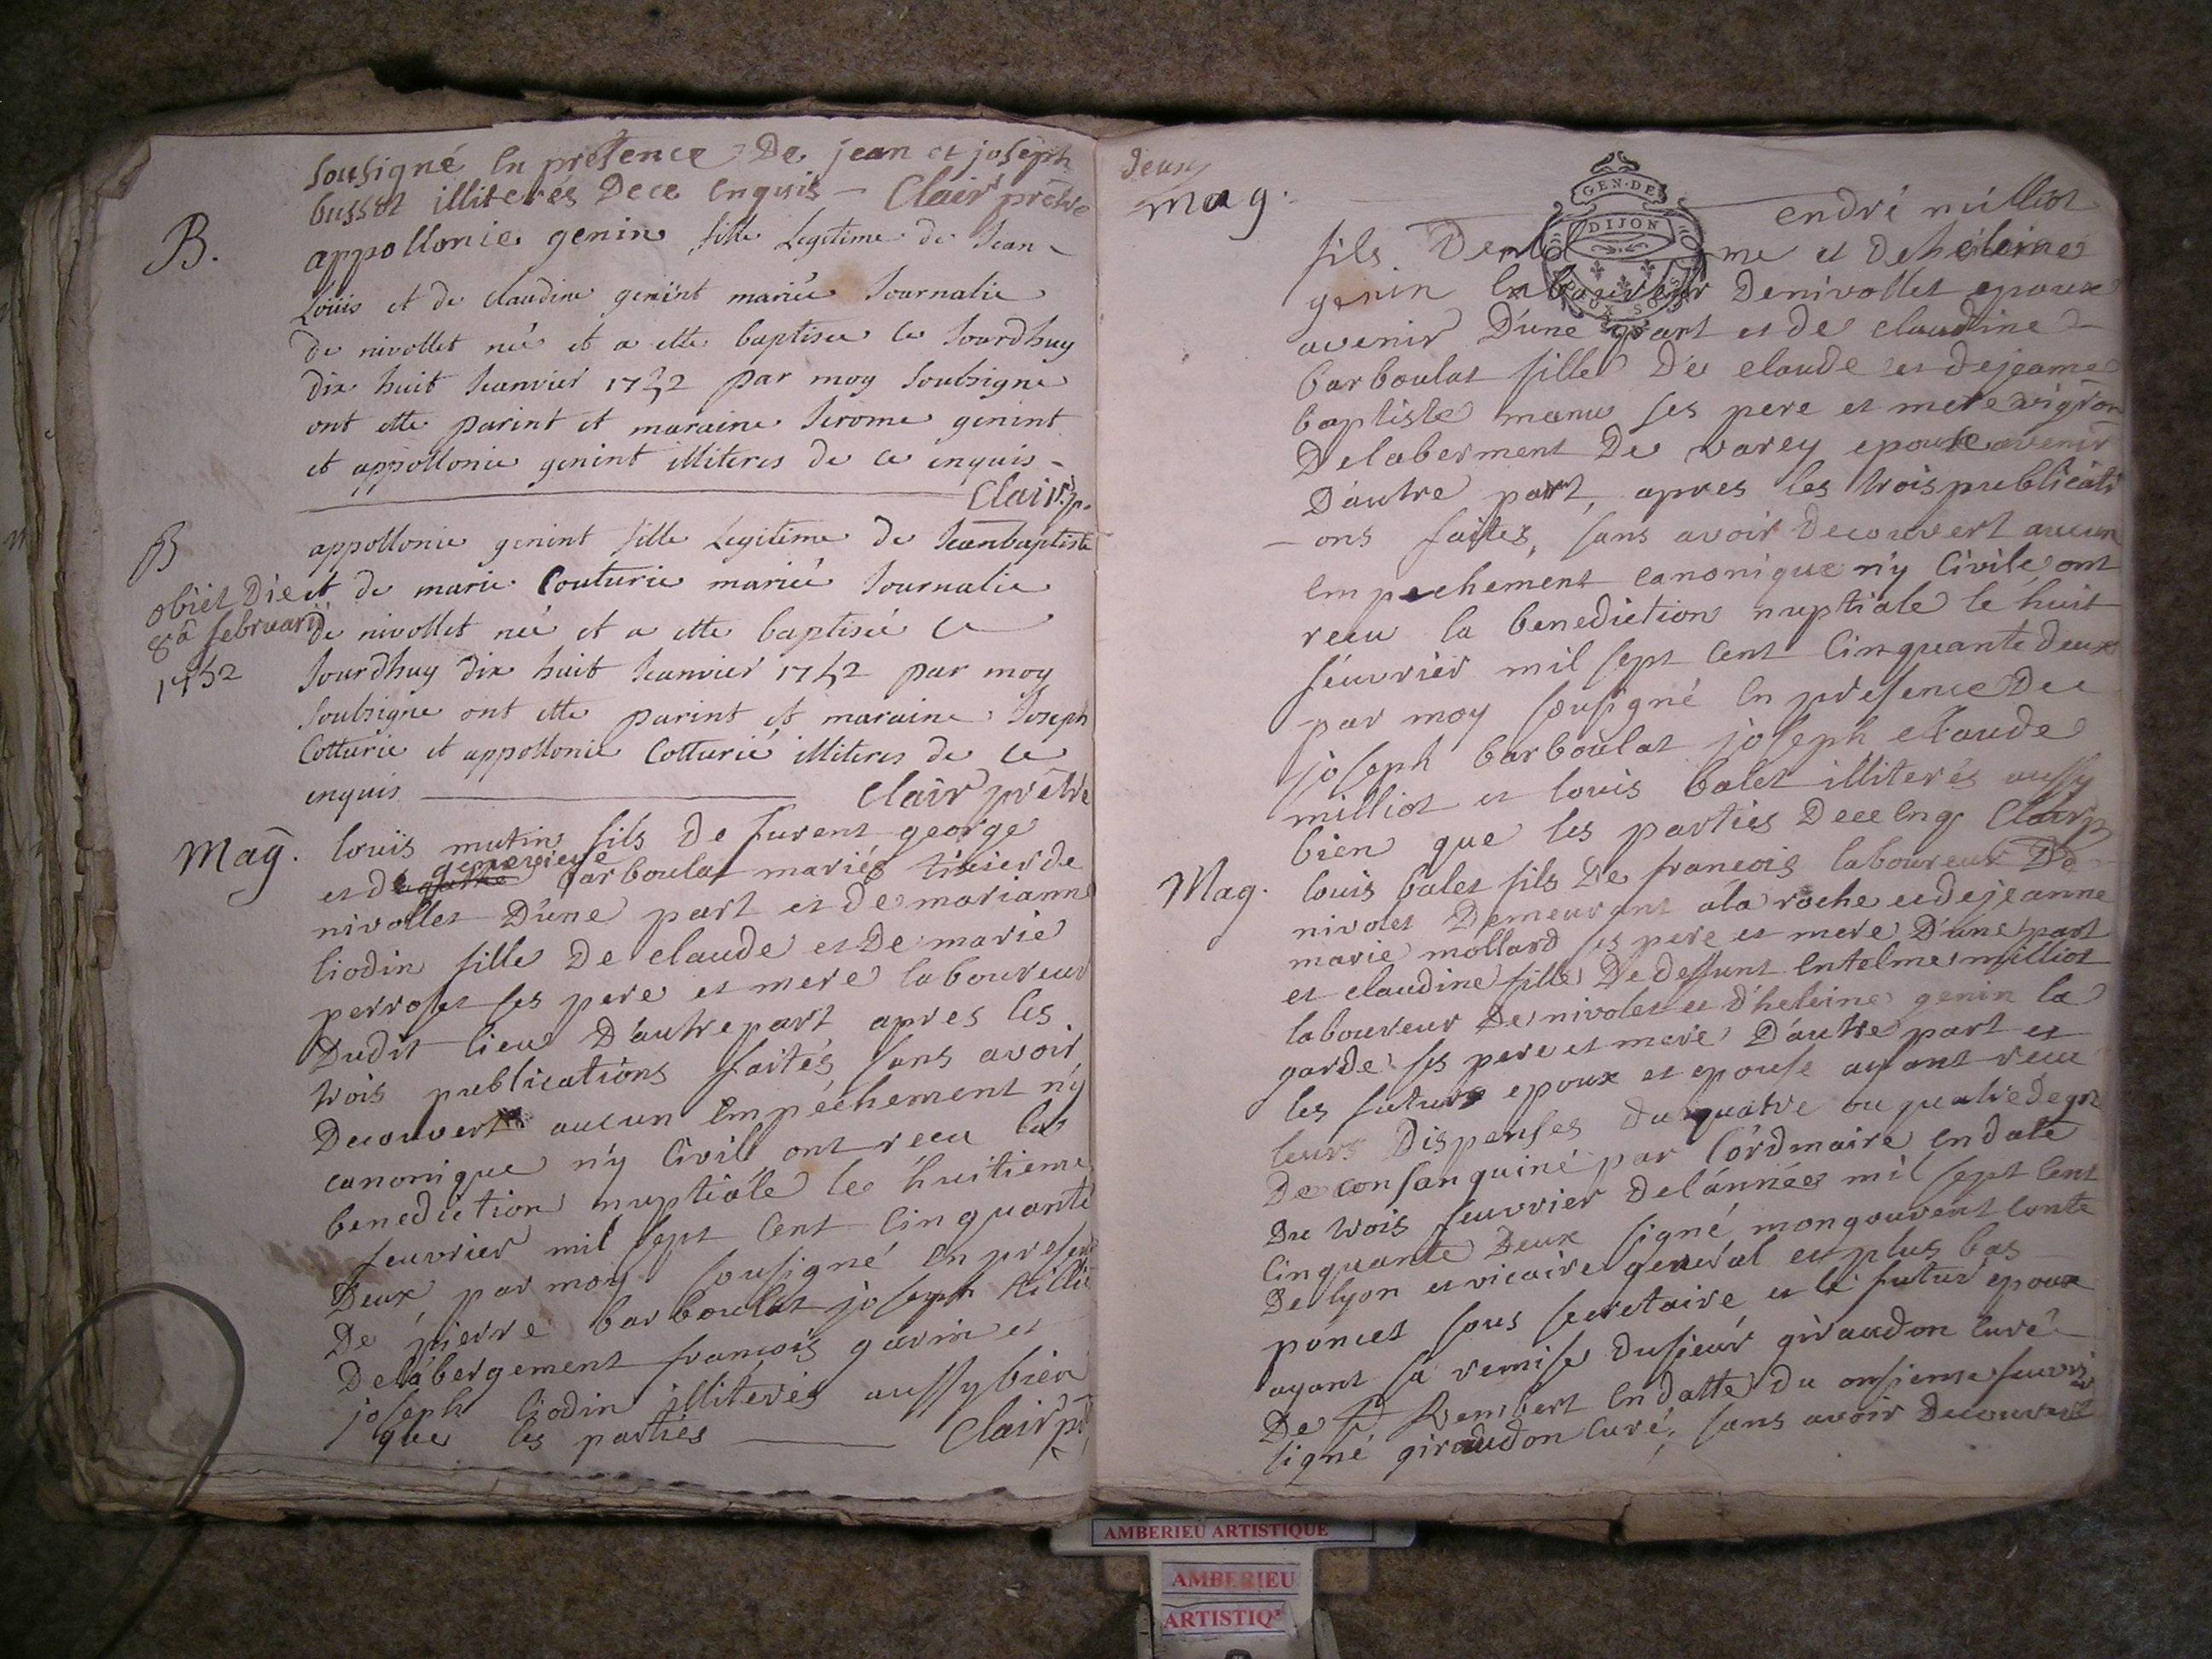 sousigné en présence De jean et joseph
bussot illiterés Dece enquis – Clair prêtre
B.
appollonie genin fille Legitime de Jean
Loüis et de claudine genint mariée Journalie
de nivollet née et a etté baptisee ce Jourdhuy
dix huit Jeanvier 1752 par moy Soubsigne
ont etté parint et maraine Jerome genint
et appollonie genint illiteres de ce enquis
Clair p.
B
appollonie genint fille Legitime de Jeanbaptiste
obiit Die
8a februarii
1752
et de marie Couturie mariée Journalie
de nivollet née et a etté baptisée ce
Jourdhuy dix huit Jeanvier 1752 par moy
Soubsigne ont etté parint et maraine Joseph
Cotturie et appollonie Cotturié illiteres de ce
enquis Clair prêtre
Mag.
louis mutin fils De furent george
genevieve
et de barboulat mariés de
nivollet D'une part et de marianne
liodin fille De claude et De marie
perroset ses pere et mere laboureur
Dudit lieu D'autre part apres les
trois publications faités sans avoir
Decouvert aucun empéchement n'y
canonique n'y Civil ont recu la
benediction nuptiale le huitieme
feuvrier mil sept cent cinquante
Deux par moy sousigné en presen
De pierre barboulat joseph
Delabergement francois garin et
joseph liodin illiterés aussy bien
que les parties Clair pr
Deux
Mag.
endré milliot
fils De me et de heleine
genin laboureur Denivollet epoux
avenir D'une part et de claudine
barboulat fille De claude et dejeanne
baptiste manu ses pere et mere vigron
Delaberment De varey epouse avenir
D'autre part, apres les trois publicati
ons faites, sans avoir decouvert aucun
empechement canonique n'y Civile ont
recu la benediction nuptiale le huit
feuvrier mil sept cent Cinquante deux
par moy sousigné en presence De
joseph barboulat joseph claude
milliot et louis balet illiterés aussy
bien que les parties Dece enq. Clair p
Mag.
louis balet fils De francois laboureur De
nivolet Demeurant àla roche et dejeanne
marie mollard ses pere et mere D'une part
et claudine fille De deffunt entelme milliot
laboureur De nivolet et d'heleine genin la
garde ses pere et mere D'autre part et
les futurs epoux et epouse ayant recu
leurs Dispenses du quatre ou quatre degre
De consanguiné par l'ordinaire en date
Du trois feuvrier del'année mil sept cent
Cinquante Deux signé mongouvent comte
De lyon et vicaire general et plus bas
poncet sous secretaire et le futur epoux
ayant sa remise du sieur giraudon curé
De St Rembert en datte du onsieme feuvrier
signé giraudon curé, sans avoir decouvert
GEN·DE
DIJON
AMBERIEU ARTISTIQUE
AMBERIEU
ARTISTIQ